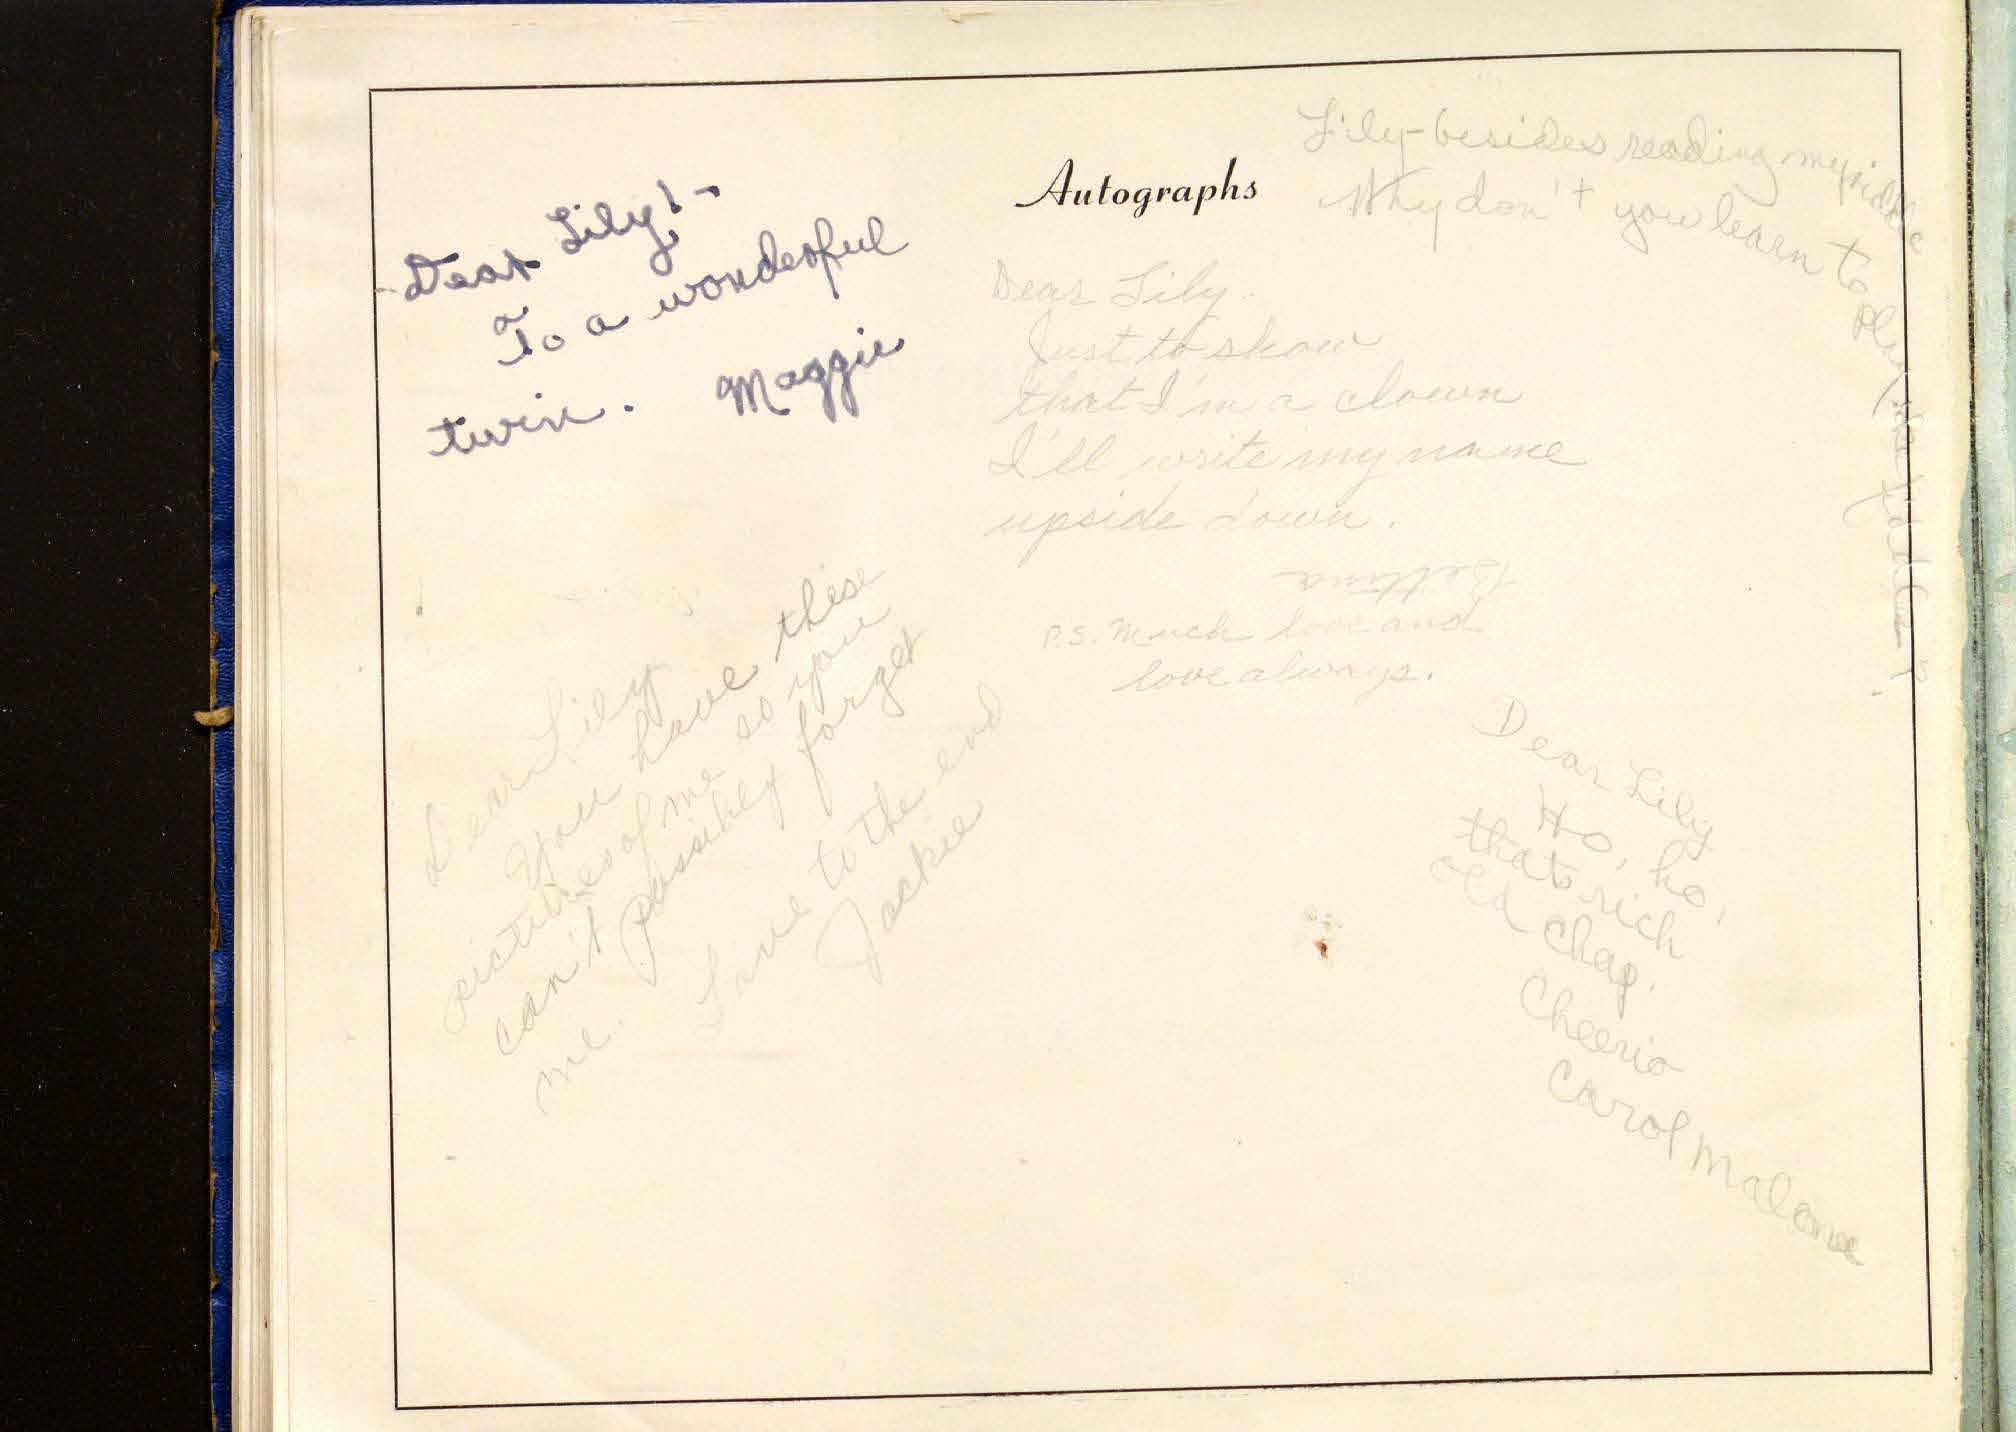 Autographs
Dear Lily! -
To a wonderful
twin. Maggie
Lily - besides reading my
Why don't you learn to play the fiddle?
Dear Lily
Just to show
that I'm a clown
I'll write my name
upside down.
Bettina
P.S. Much love and
love always.
Dear Lily
You have these
pictures of me so you
can't possibly forget
me. Love to the end
Jackie
Dear Lily
Ho, ho,
thats rich
old chap.
Cheerio
Carol Malone